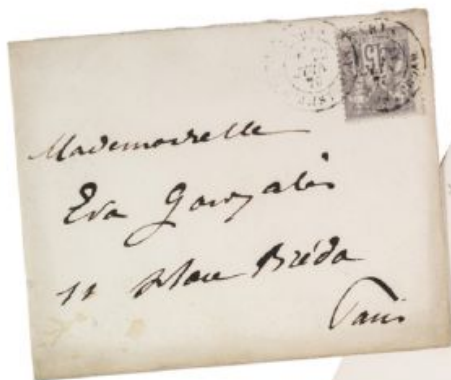 Mademoiselle
Eva Gonzalès
11 Place Bréda
Paris
15